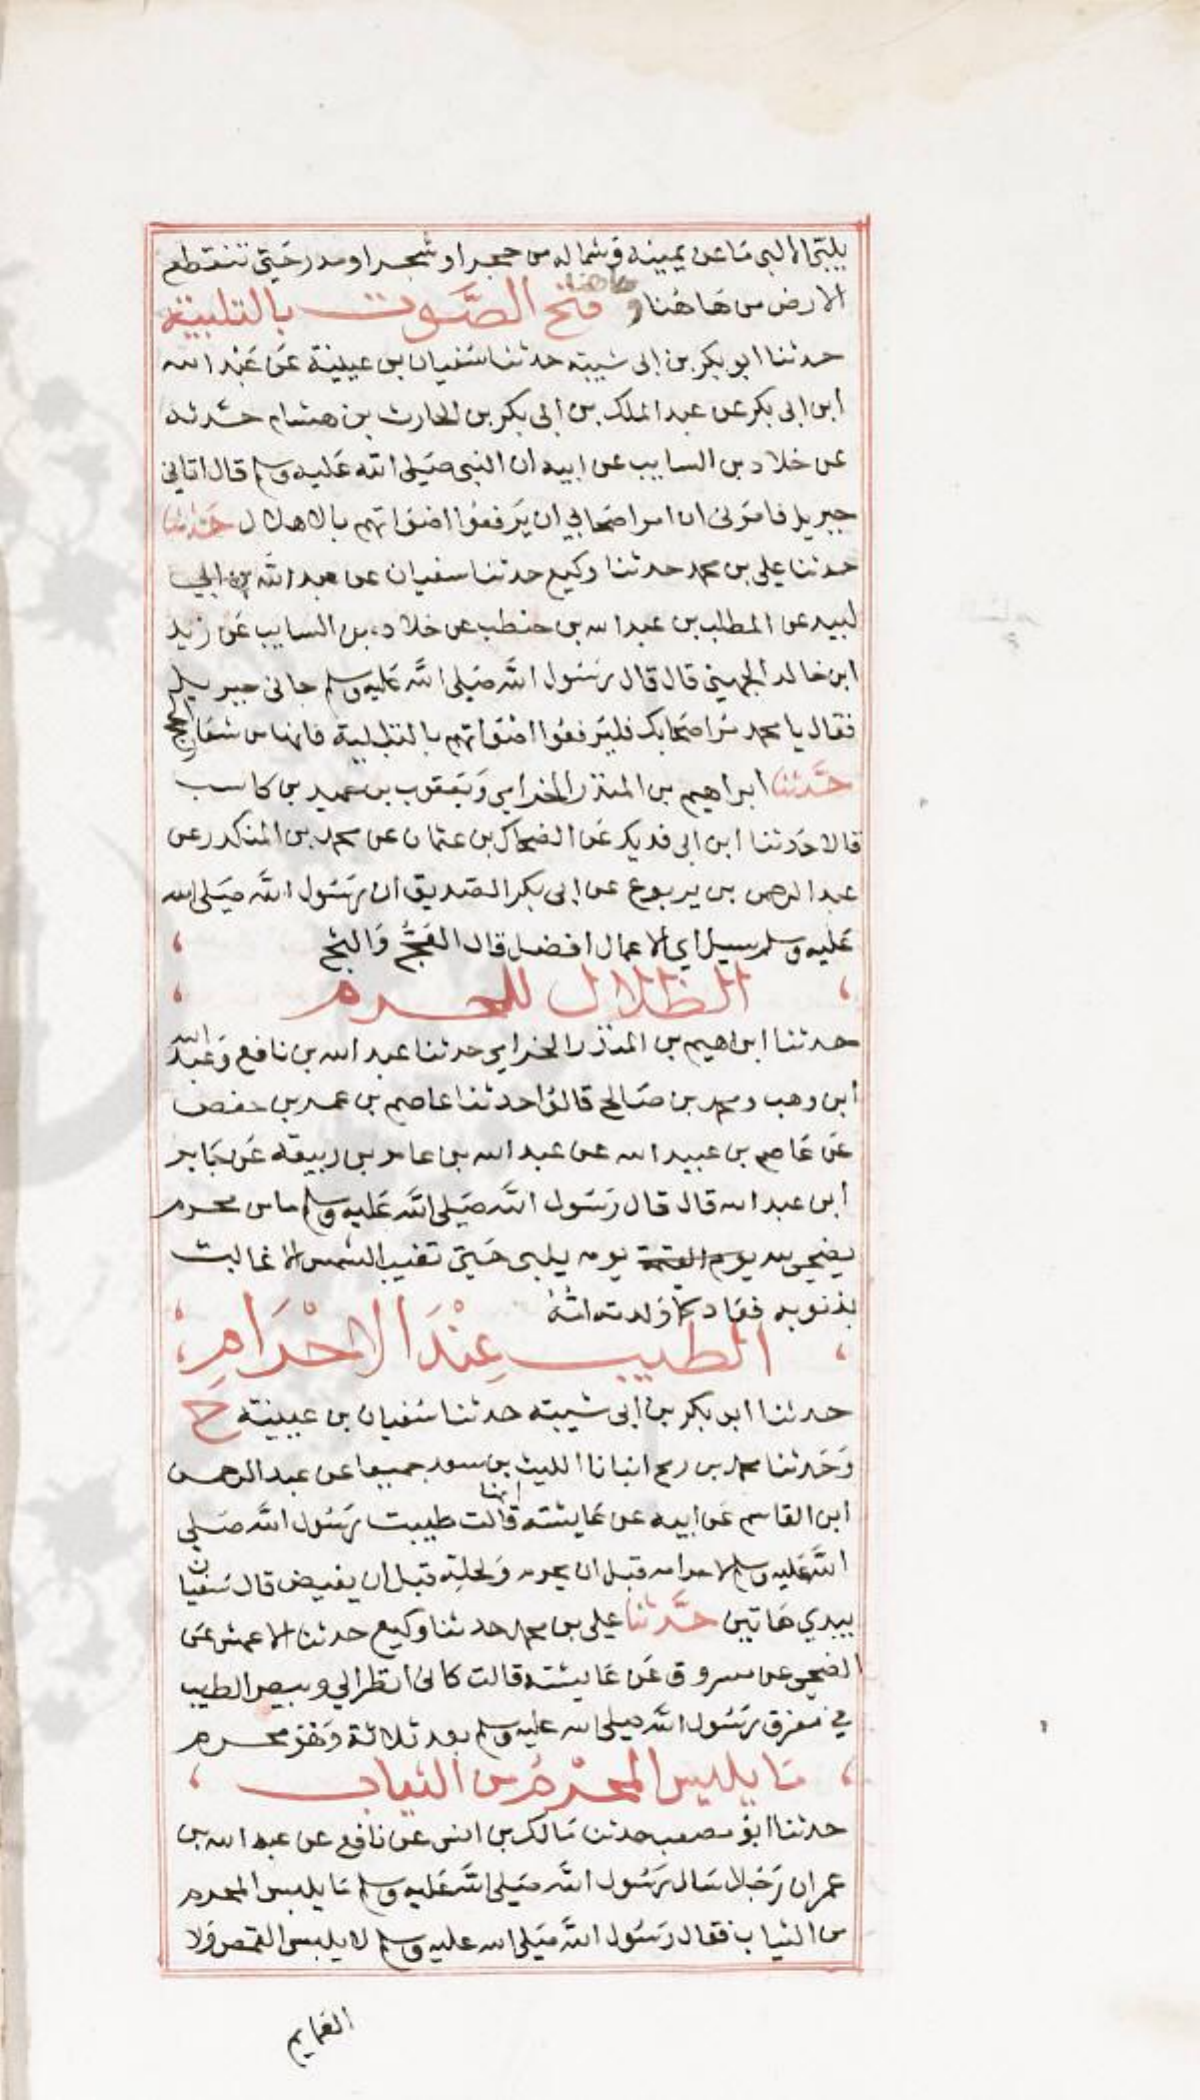 يلبي الا لبي ما عن يمينه وشماله من حجر او شجر او مدر حتي تنقطع
الارض من هاهنا وهاهنا فتح الصوت بالتلبية
حدثنا ابو بكر بن ابى شيبه حدثنا سفيان بن عيينة عن عبد الله
ابن ابى بكر عن عبد الملك بن ابى بكر بن الحارث بن هشام حدثه
عن خلاد بن السايب عن ابيه ان النبي صلى الله عليه وسلم قال اتاني
جبريل فامرنى ان امر اصحابي ان يرفعوا اصواتهم بالاهلال حدثنا
حدثنا علي بن محمد حدثنا وكيع حدثنا سفيان عن عبد الله بن ابي
لبيد عن المطلب بن عبد الله بن حنطب عن خلاد بن السايب عن زيد
ابن خالد الجهني قال قال رسول الله صلى الله عليه وسلم جانى جبريل
فقال يا محمد مر اصحابك فليرفعوا اصواتهم بالتلبية فانها من شعار الحج
حدثنا ابراهيم بن المنذر الحزامي ويعقوب بن حميد بن كاسب
قالا حدثنا ابن ابى فديك عن الضحاك بن عثمان عن محمد بن المنكدر عن
عبد الرحمن بن يربوع عن ابى بكر الصديق ان رسول الله صلى الله
عليه وسلم سيل اي الاعمال افضل قال العج والثج
الظلال للمحرم
حدثنا ابراهيم بن المنذر الحزامي حدثنا عبد الله بن نافع وعبد الله
ابن وهب ومحمد بن صالح قالوا حدثنا عاصم بن عمر بن حفص
عن عاصم بن عبيد الله عن عبد الله بن عامر بن ربيعة عن جابر
ابن عبد الله قال قال رسول الله صلى الله عليه وسلم ما من محرم
يضحي لله يوم القيمة يومه يلبى حتي تغيب الشمس الا غابت
بذنوبه فعاد كما ولدته امه
الطيب عند الاحرام
حدثنا ابو بكر بن ابى شيبه حدثنا سفيان بن عيينة ح
وحدثنا محمد بن رمح انبانا الليث بن سعد جميعا عن عبد الرحمن
ابن القاسم عن ابيه عن عايشه انها قالت طيبت رسول الله صلي
الله عليه وسلم لاحرامه قبل ان يحرم ولحله قبل ان يفيض قال سفيان
بيدي هاتين حدثنا علي بن محمد حدثنا وكيع حدثنا الاعمش عن
الضحي عن مسروق عن عايشه قالت كانى انظر الي وبيص الطيب
في مفرق رسول الله صلى الله عليه وسلم بعد ثلاثة وهو محرم
ما يلبس المحرم من الثياب
حدثنا ابو مصعب حدثنا مالك بن انس عن نافع عن عبد الله بن
عمر ان رجلا سال رسول الله صلى الله عليه وسلم ما يلبس المحرم
من الثياب فقال رسول الله صلى الله عليه وسلم لا يلبس القمص ولا
العمايم